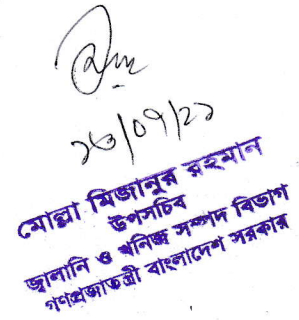 ১৬/০৭/২১
মোল্লা মিজানুর রহমান
উপসচিব
জ্বালানি ও খনিজ সম্পদ বিভাগ
গণপ্রজাতন্ত্রী বাংলাদেশ সরকার